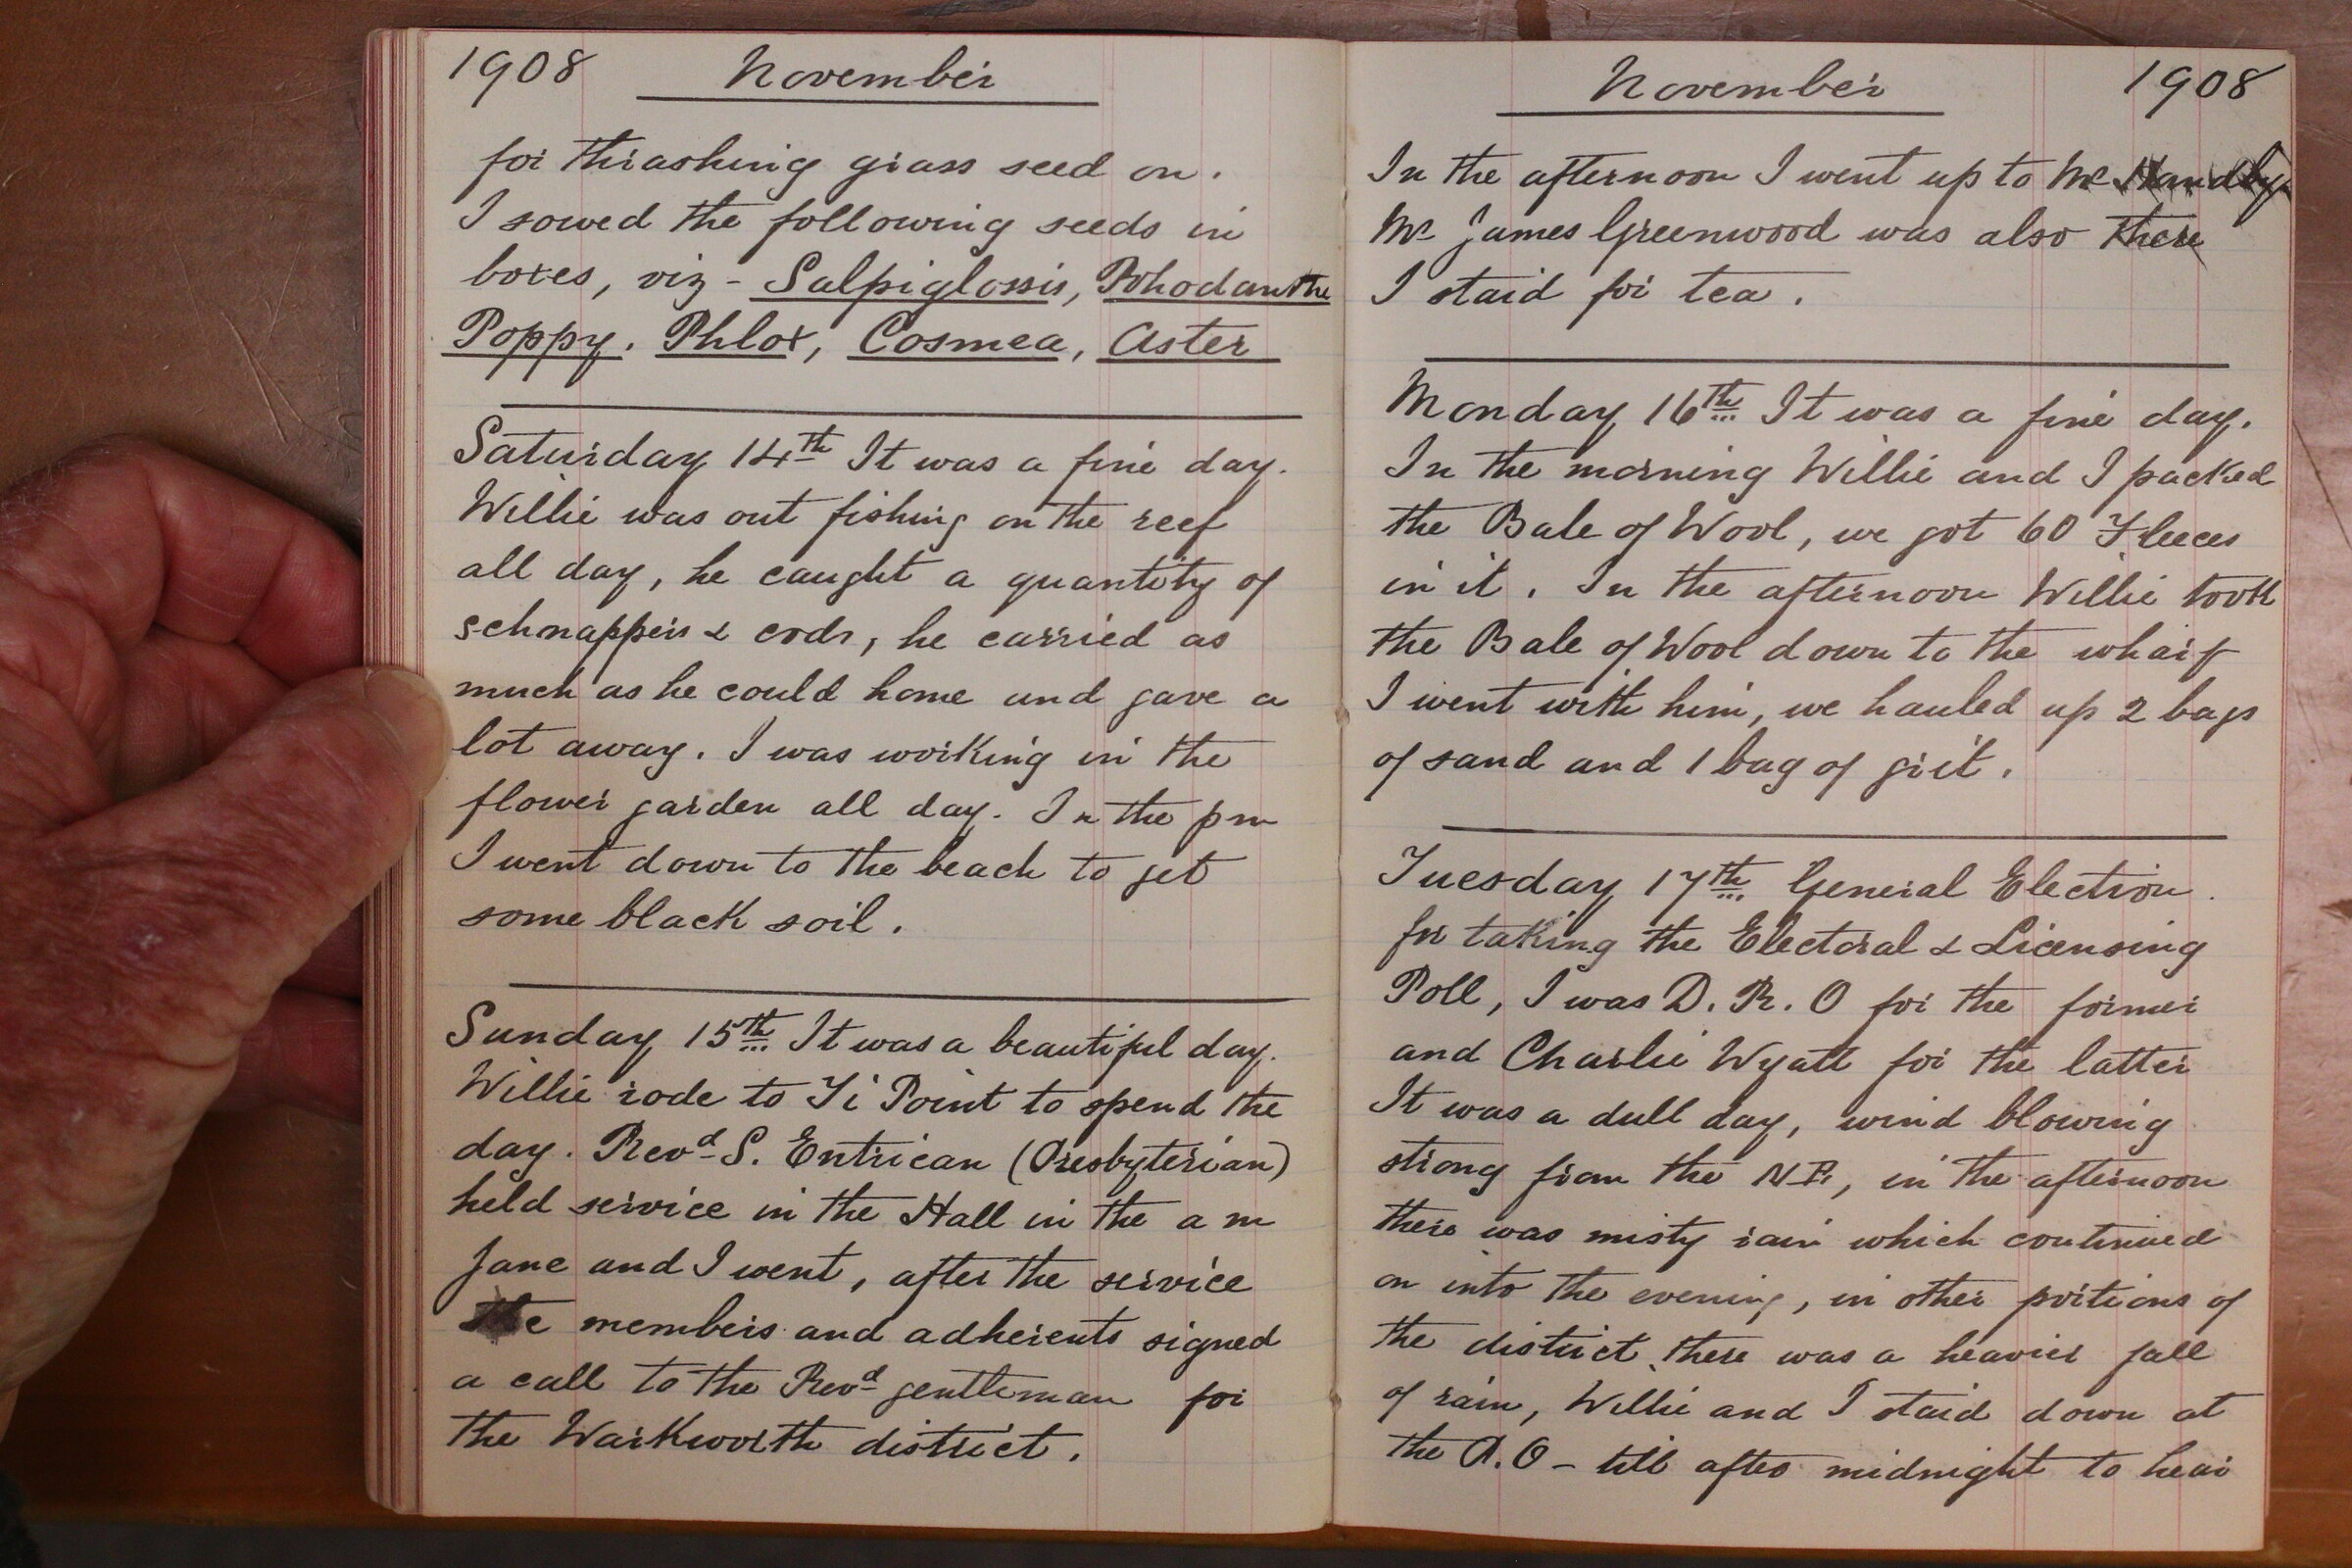 1908 November
for thrashing grass seed on.
I sowed the following seeds in
boxes, viz - Salpiglossis, Rhodanthe
Poppy. Phlox, Cosmea, Aster
Saturday 14th It was a fine day.
Willie was out fishing on the reef
all day, he caught a quantity of
schnappers & cods, he carried as
much as he could home and gave a
lot away. I was working in the
flower garden all day. In the pm
I went down to the beach to get
some black soil.
Sunday 15th It was a beautiful day.
Willie rode to Ti Point to spend the
day. Revd S. Entrican (Presbyterian)
held service in the Hall in the a m
Jane and I went, after the service
the members and adherents signed
a call to the Revd gentleman for
the Warkworth district.
November 1908
In the afternoon I went up to Mr
Mr James Greenwood was also there
I staid for tea.
Monday 16th It was a fine day.
In the morning Willie and I packed
the Bale of Wool, we got 60 Fleeces
in it. In the afternoon Willie took
the Bale of Wool down to the wharf
I went with him, we hauled up 2 bags
of sand and 1 bag of grit.
Tuesday 17th General Election.
for taking the Electoral & Licensing
Poll, I was D. R. O for the former
and Charlie Wyatt for the latter
It was a dull day, wind blowing
strong from the N E, in the afternoon
there was misty rain which continued
on into the evening, in other portions of
the district, there was a heavier fall
of rain, Willie and I staid down at
the P.O - till after midnight to hear